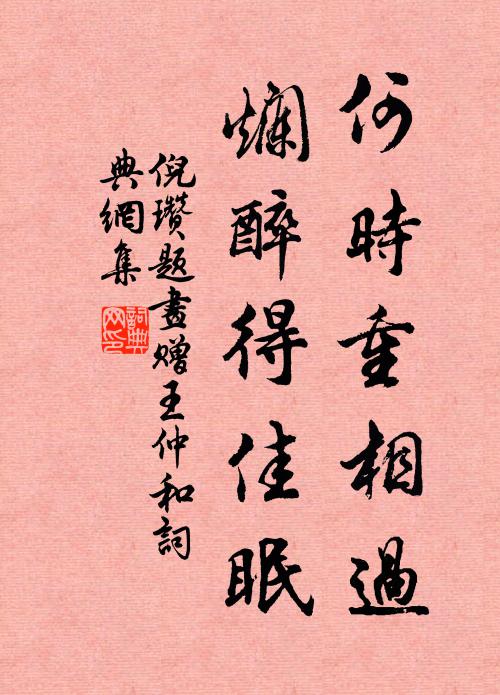 何時重相過
爛醉得佳眠
倪瓚題畫贈王仲和詞
典網集
詞典网印